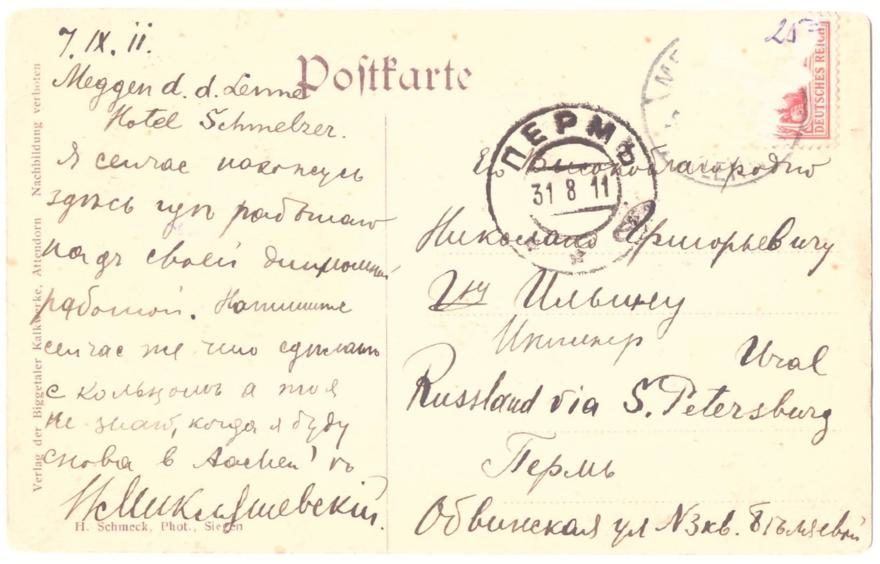 7.IX.11.
Meggen a. d. Lenne
Hotel Schmelzer.
Я сейчас нахожусь
здѣсь гдѣ работаю
надъ своей дипломной
работой. Напишите
сейчас же что сдѣлать
с кольцомъ а то я
не знаю, когда я буду
снова в Aachen'ѣ
Н Миклашевскій.
Postkarte
Verlag der Biggetaler Kalkwerke, Attendorn Nachbildung verboten
H. Schmeck, Phot., Siegen
25
DEUTSCHES REICH
ПЕРМЬ
31 8 11
Его Высокоблагородію
Николаю Григорьевичу
Ильину
Инженер
Ural
Russland via S. Petersburg
Пермь
Обвинская ул N3 кв.